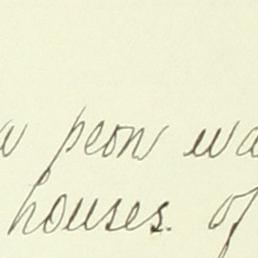 peon wa
houses. of